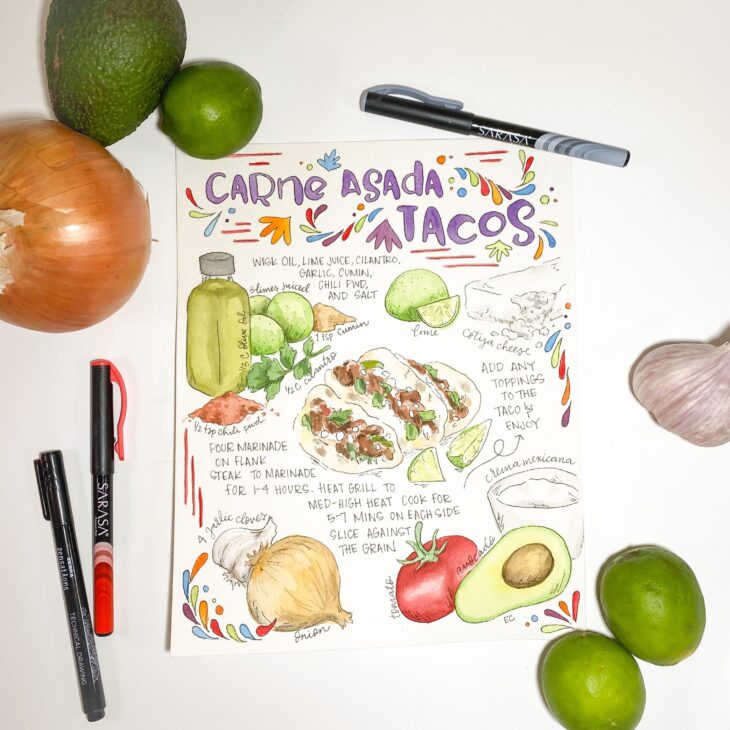 CARNE ASADA
TACOS
WISK OIL, LIME JUICE, CILANTRO,
GARLIC, CUMIN,
CHILI PWD,
AND SALT
3 limes juiced
1 tsp cumin
1/3 C Olive Oil
1/2 C cilantro
1/2 tsp chili pwd
lime
Cotija cheese
ADD ANY
TOPPINGS
TO THE
TACO &
ENJOY
POUR MARINADE
ON FLANK
STEAK TO MARINADE
FOR 1-4 HOURS. HEAT GRILL TO
MED-HIGH HEAT COOK FOR
5-7 MINS ON EACH SIDE
SLICE AGAINST
THE GRAIN
crema mexicana
4 garlic cloves
onion
tomato
avocado
EC
SARASA
SARASA
ZEBRA
zensations
TECHNICAL DRAWING